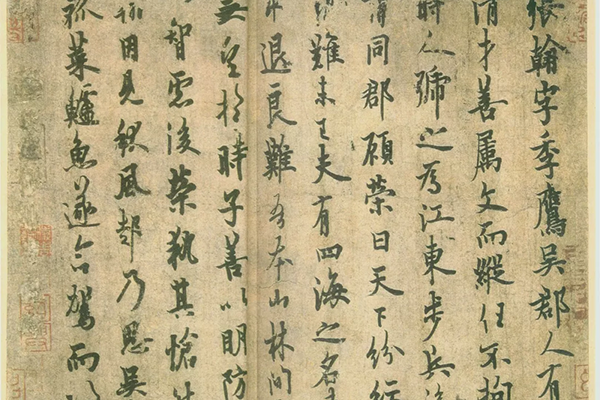 張翰字季鷹吳郡人有
清才善屬文而縱任不拘
時人號之為江東步兵後
謂同郡顧榮曰天下紛紜
難未已夫有四海之名者
求退良難吾本山林間
無望於時子善以明防
智慮後榮執其愴然
翰因見秋風起乃思吳
菰菜鱸魚遂命駕而歸